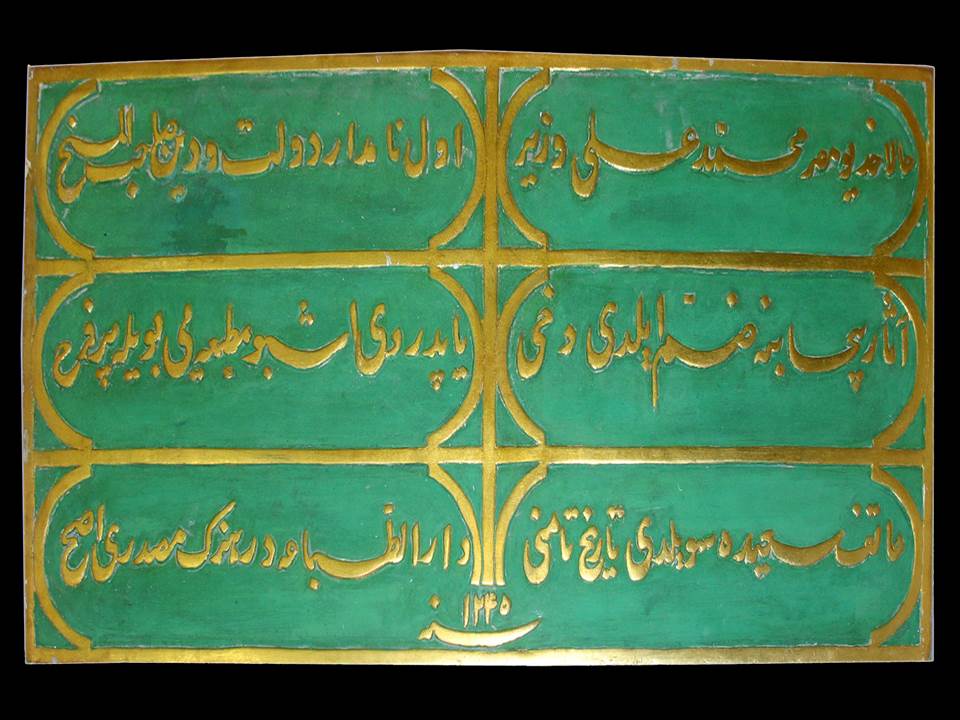 حالا خديو مصر محمد علی وزير
اول نامدار دولت ودين صاحب المنح
آثار بيحسابنه ضم ايلدی دخی
ياپدردی اشبو مطبعه يی بويله پر فرح
هاتف سعيده سويلدی تاريخ تامنی
دار الطباعه در هنرك مصدری اصح
سنه ١٢٤٥